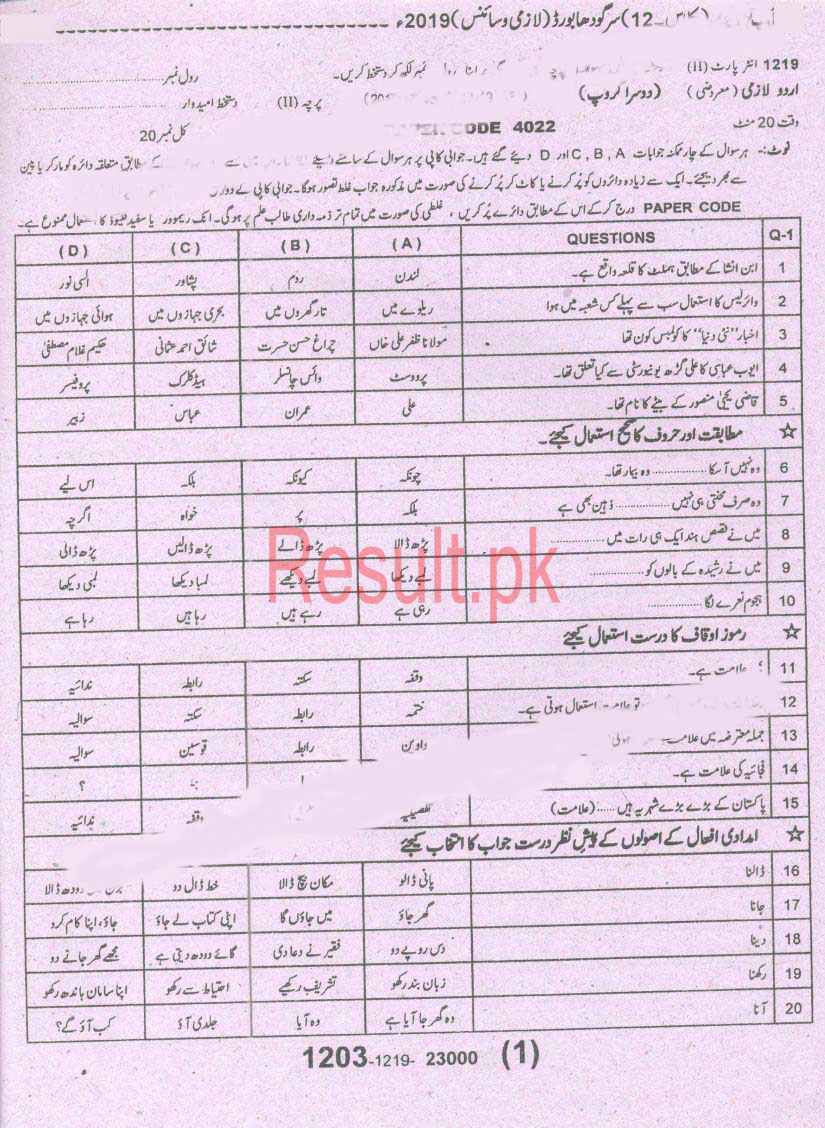 (کلاس ـ 12) سرگودھا بورڈ (لازمی و سائنس) 2019ء
1219 انٹر پارٹ (II) نمبر لکھ کر دستخط کریں۔ رول نمبر
اردو لازمی (معروضی) (دوسرا گروپ) پرچہ (II) دستخط امیدوار
وقت 20 منٹ CODE 4022 کل نمبر 20
نوٹ:- ہر سوال کے چار ممکنہ جوابات A ,B ,C اور D دیئے گئے ہیں۔ جوابی کاپی پر ہر سوال کے سامنے دیئے مطابق متعلقہ دائرہ کو مارکر یا پین
سے بھر دیجئے۔ ایک سے زیادہ دائروں کو پُر کرنے یا کاٹ کر پُر کرنے کی صورت میں مذکورہ جواب غلط تصور ہوگا۔ جوابی کاپی کے دونوں
PAPER CODE درج کر کے اس کے مطابق دائرے پُر کریں، غلطی کی صورت میں تمام تر ذمہ داری طالب علم پر ہوگی۔ انک ریموور یا سفید فلیوڈ کا استعمال ممنوع ہے۔
Q-1 QUESTIONS (A) (B) (C) (D)
1 ابن انشا کے مطابق ہملٹ کا قلعہ واقع ہے۔ لندن روم پشاور السی نور
2 وائرلیس کا استعمال سب سے پہلے کس شعبہ میں ہوا ریلوے میں تار گھروں میں بحری جہازوں میں ہوائی جہازوں میں
3 اخبار "نئی دنیا" کا کولمبس کون تھا مولانا ظفر علی خاں چراغ حسن حسرت شائق احمد عثمانی حکیم غلام مصطفیٰ
4 ایوب عباسی کا علی گڑھ یونیورسٹی سے کیا تعلق تھا۔ پرووسٹ وائس چانسلر ہیڈ کلرک پروفیسر
5 قاضی یحییٰ منصور کے بیٹے کا نام تھا۔ علی عمران عباس زبیر
☆ مطابقت اور حروف کا صحیح استعمال کیجئے۔
6 وہ نہیں آ سکا ............ وہ بیمار تھا۔ چونکہ کیونکہ بلکہ اس لیے
7 وہ صرف محنتی ہی نہیں ............ ذہین بھی ہے بلکہ پر خواہ اگرچہ
8 میں نے قصص ہند ایک ہی رات میں ............ پڑھ ڈالا پڑھ ڈالے پڑھ ڈالیں پڑھ ڈالی
9 میں نے رشیدہ کے بالوں کو ............ لمبے دیکھا لمبے دیکھے لمبا دیکھا لمبی دیکھا
10 ہجوم نعرے لگا ............ رہی ہے رہے ہیں رہا ہیں رہا ہے
☆ رموز اوقاف کا درست استعمال کیجئے
11 ؛ علامت ہے۔ وقفہ سکتہ رابطہ ندائیہ
12 تو علامت استعمال ہوتی ہے۔ ختمہ رابطہ سکتہ سوالیہ
13 جملہ معترضہ میں علامت ہوتی واوین رابطہ قوسین سوالیہ
14 فجائیہ کی علامت ہے۔ ؟
15 پاکستان کے بڑے بڑے شہر یہ ہیں ...... (علامت) تفصیلیہ وقفہ ندائیہ
☆ امدادی افعال کے اصولوں کے پیشِ نظر درست جواب کا انتخاب کیجئے
16 ڈالنا پانی ڈالو مکان بیچ ڈالا خط ڈال دو دودھ ڈالا
17 جانا گھر جاؤ میں جاؤں گا اپنی کتاب لے جاؤ جاؤ، اپنا کام کرو
18 دینا دس روپے دو فقیر نے دعا دی گائے دودھ دیتی ہے مجھے گھر جانے دو
19 رکھنا زبان بند رکھو تشریف رکھیے احتیاط سے رکھو اپنا سامان باندھ رکھو
20 آنا وہ گھر جا آیا ہے وہ آیا جلدی آؤ کب آؤ گے؟
1203-1219- 23000 (1)
Result.pk